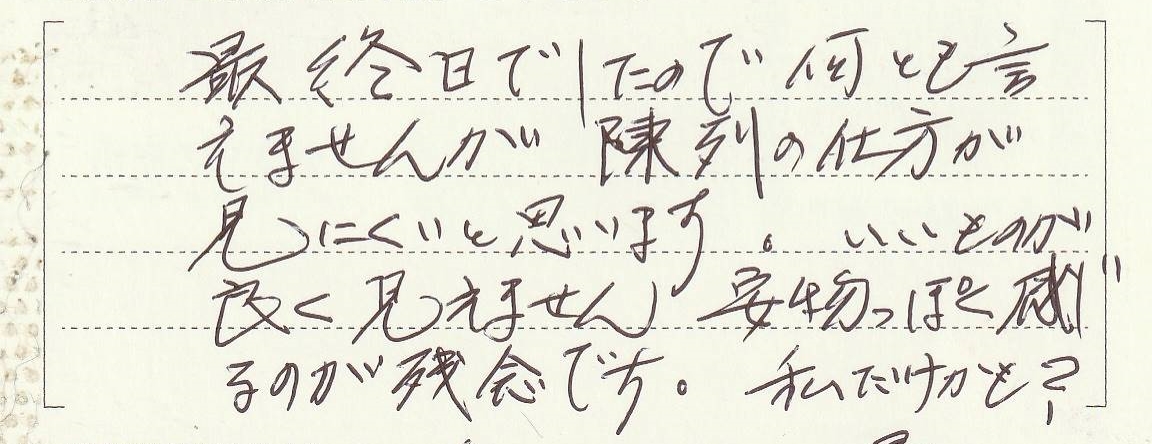 最終日でしたので何とも言
えませんが 陳列の仕方が
見にくいと思います。いいものが
良く見えません 安物っぽく感じ
るのが残念です。私だけかも?